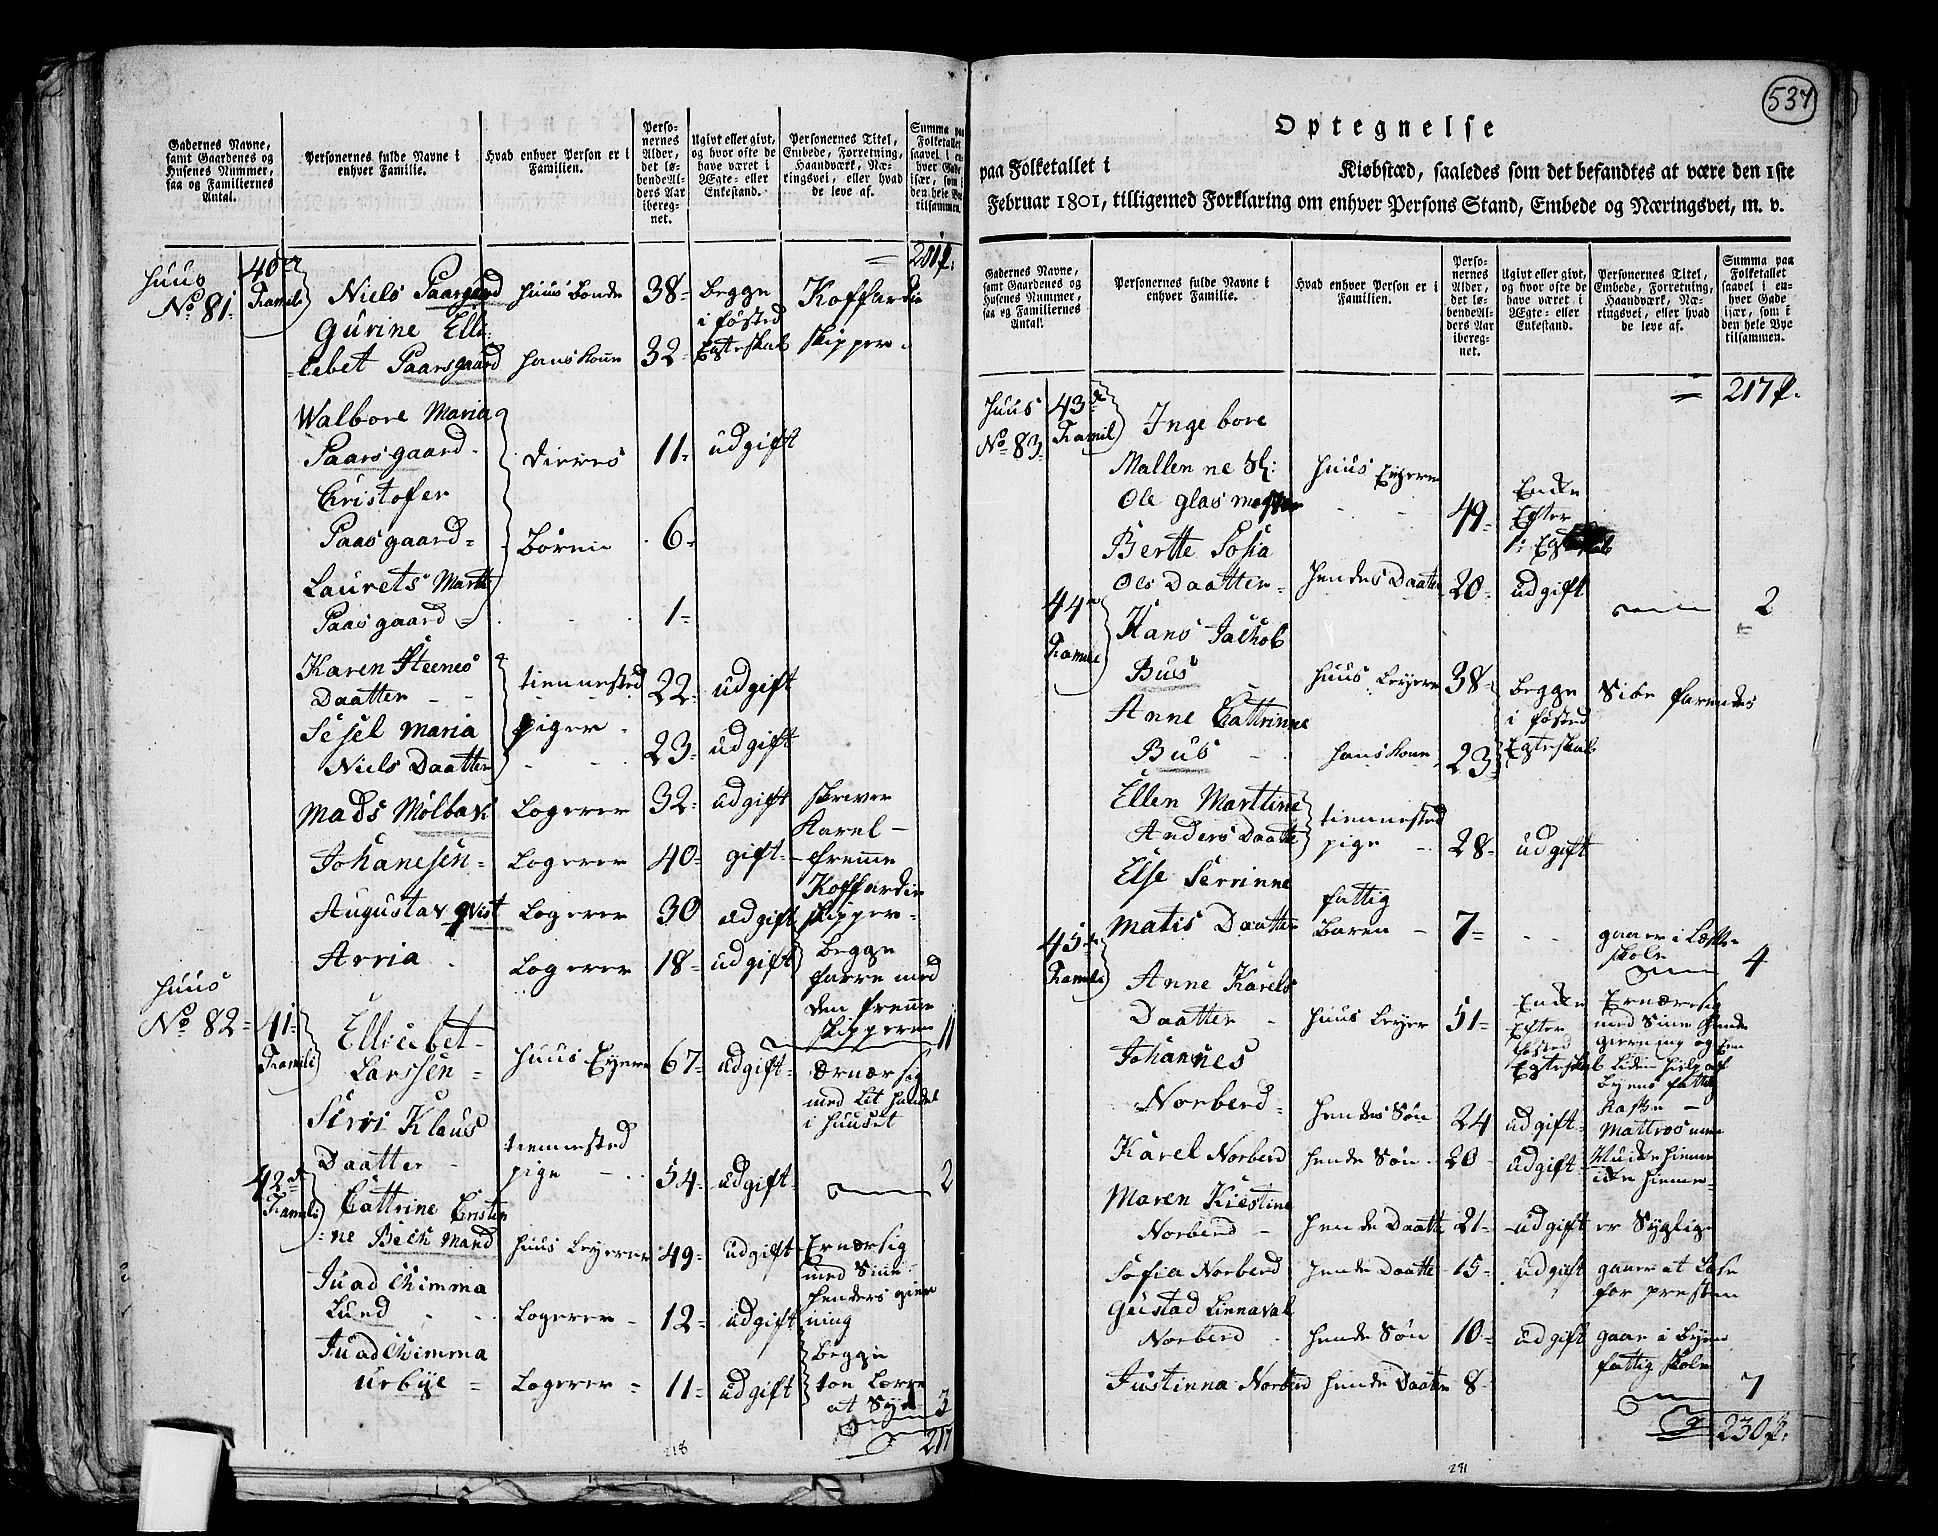 Gadernes Navne,
samt Gaardenes og
Husenes Nummer,
saa og Familiernes
Antal.
Personernes fulde Navne i
enhver Familie.
Hvad enhver Person er i
Familien.
Perso-
nernes
Alder,
det lø-
bende Al-
ders Aar
ibereg-
net.
Ugivt eller givt,
og hvor ofte de
have været i
Ægte- eller
Enkestand.
Personernes Titel,
Embede, Forretning,
Haandværk, Næ-
ringsvei, eller hvad
de leve af.
Summa paa
Folketallet
saavel i en-
hver Gade
især, som i
den hele Bye
tilsammen.
201 f:
Huus No 81 40de Famili Niels Paarsgaard Huus Bonde 38 begge Koffardie
Gurine Elle i føsted
-lebet Paarsgaard hans kone 32 Egteskab skipper
Walbore Maria
Paarsgaard derres 11 udgift
Cristofer
Paasgaard Børne 6
Laurets Martte
Paasgaard 1
Karen Steenes tiennested
Daatter 22 udgift
Sesel Maria piger
Niels Daatter 23 udgift
Mads Mölbak Logerer 32 udgift skrever
Karel
Johanesen Logerer 40 gift fremme
Koffardie
Augusta Qvist Logerer 30 udgift skipper
Arria Logerer 18 udgift begge
farre med
den fremme
skipperen 11
Huus No 82 41 Famili Ellsebet
Larssen Huus Eyere 67 udgift Ernær sig
med Lit Handel
i Huuset
Sirri Klaus tiennested
Daatter pige 54 udgift 2
42de Famili Cattrine Cristi
-ne Beck mand Huus Leyerer 49 udgift Ernær sig
med Sine
Henders gier
ning
Juad Chimma
Lund Logerer 12 udgift
Juad Chimma begge
urbye Logerer 11 udgift son Lærre
at Sye 3
217
218
537
Optegnelse
paa Folketallet i Kiøbstæd, saaledes som det befandtes at være den 1ste
Februar 1801, tilligemed Forklaring om enhver Persons Stand, Embede og Næringsvei, m. v.
Gadernes Navne,
samt Gaardenes og
Husenes Nummer,
saa og Familiernes
Antal.
Personernes fulde Navne i
enhver Familie.
Hvad enhver Person er i
Familien.
Perso-
nernes
Alder,
det lø-
bende Al-
ders Aar
ibereg-
net.
Ugivt eller givt,
og hvor ofte de
have været i
Ægte- eller
Enkestand.
Personernes Titel,
Embede, Forretning,
Haandværk, Næ-
ringsvei, eller hvad
de leve af.
Summa paa
Folketallet
saavel i en-
hver Gade
især, som i
den hele Bye
tilsammen.
217 f.
Huus No 83 43de Famil Ingebore
Mallenne Sl: Huus Eyeren Enke
Ole glas mester 49 Efter
1: Egteskab
Bertte Sofia
Ols Daatter Hendes Daatter 20 udgift 2
44de Famile Hans Jackob
Bus Huus Leyere 38 begge Sibe farendes
Anne Cattrinne i føsted
Bus hans kone 23 Egteskab
Ellen Marttine tiennested
Anders Daatte pige 28 udgift
Else Serrinne fattig
Matis Daatter Baren 7 gaaer i Læsse
skole 4
45de Famili Anne Karels Enke Ernær sig
Daatter Huus Leyer 51 Efter med Sine Hende
føsted gierning og Een
Egteskab Liden hielp af
byens fattig
Johannes Kasse
Norberd Hendes Søn 24 udgift Mattros men
Karel Norberd Hende Søn 20 udgift ikke hieme
Maren Kirstine
Norberd Hende Daatte 21 udgift er Syglig
Sofia Norberd Hende Daatte 15 udgift gaaer at Læse
for presten
Gustad Linnaval
Norberd Hende Søn 10 udgift gaar i byens
fattig skole
Justinna Norberd Hende Daatter 8 7
230 f.
291